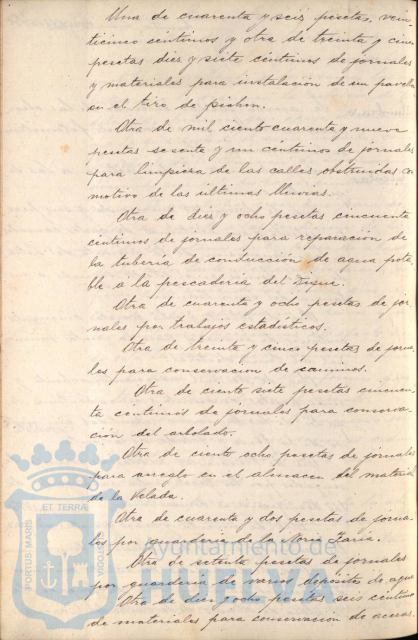 Una de cuarenta y seis pesetas, vein-
ticinco centimos y otra de treinta y cinco
pesetas diez y siete centimos de jornales
y materiales para instalación de un
en el tiro de pichon.
Otra de mil ciento cuarenta y nueve
pesetas sesenta y un centimos de jornales
para limpieza de las calles obstruidas con
motivo de las últimas lluvias.
Otra de diez y ocho pesetas cincuenta
centimos de jornales para reparación de
la tubería de conducción de agua pota
ble á la pescadería del Dique.
Otra de cuarenta y ocho pesetas de jor
nales por trabajos estadísticos.
Otra de treinta y cinco pesetas de jorna
les para conservacion de caminos.
Otra de ciento siete pesetas cincuen-
ta centimos de jornales para conserva-
ción del arbolado.
Otra de ciento ocho pesetas de jornales
para arreglo en el almacen del material
de la Velada.
Otra de cuarenta y dos pesetas de jorna-
les por guardería de la
Otra de setenta pesetas de jornales
por guardería de varios depósitos de agua
Otra de diez y ocho pesetas seis centimos
de materiales para conservacion de aceras
PORTUS MARIS
ET TERRÆ
CUSTODIA
Ayuntamiento de
HUELVA